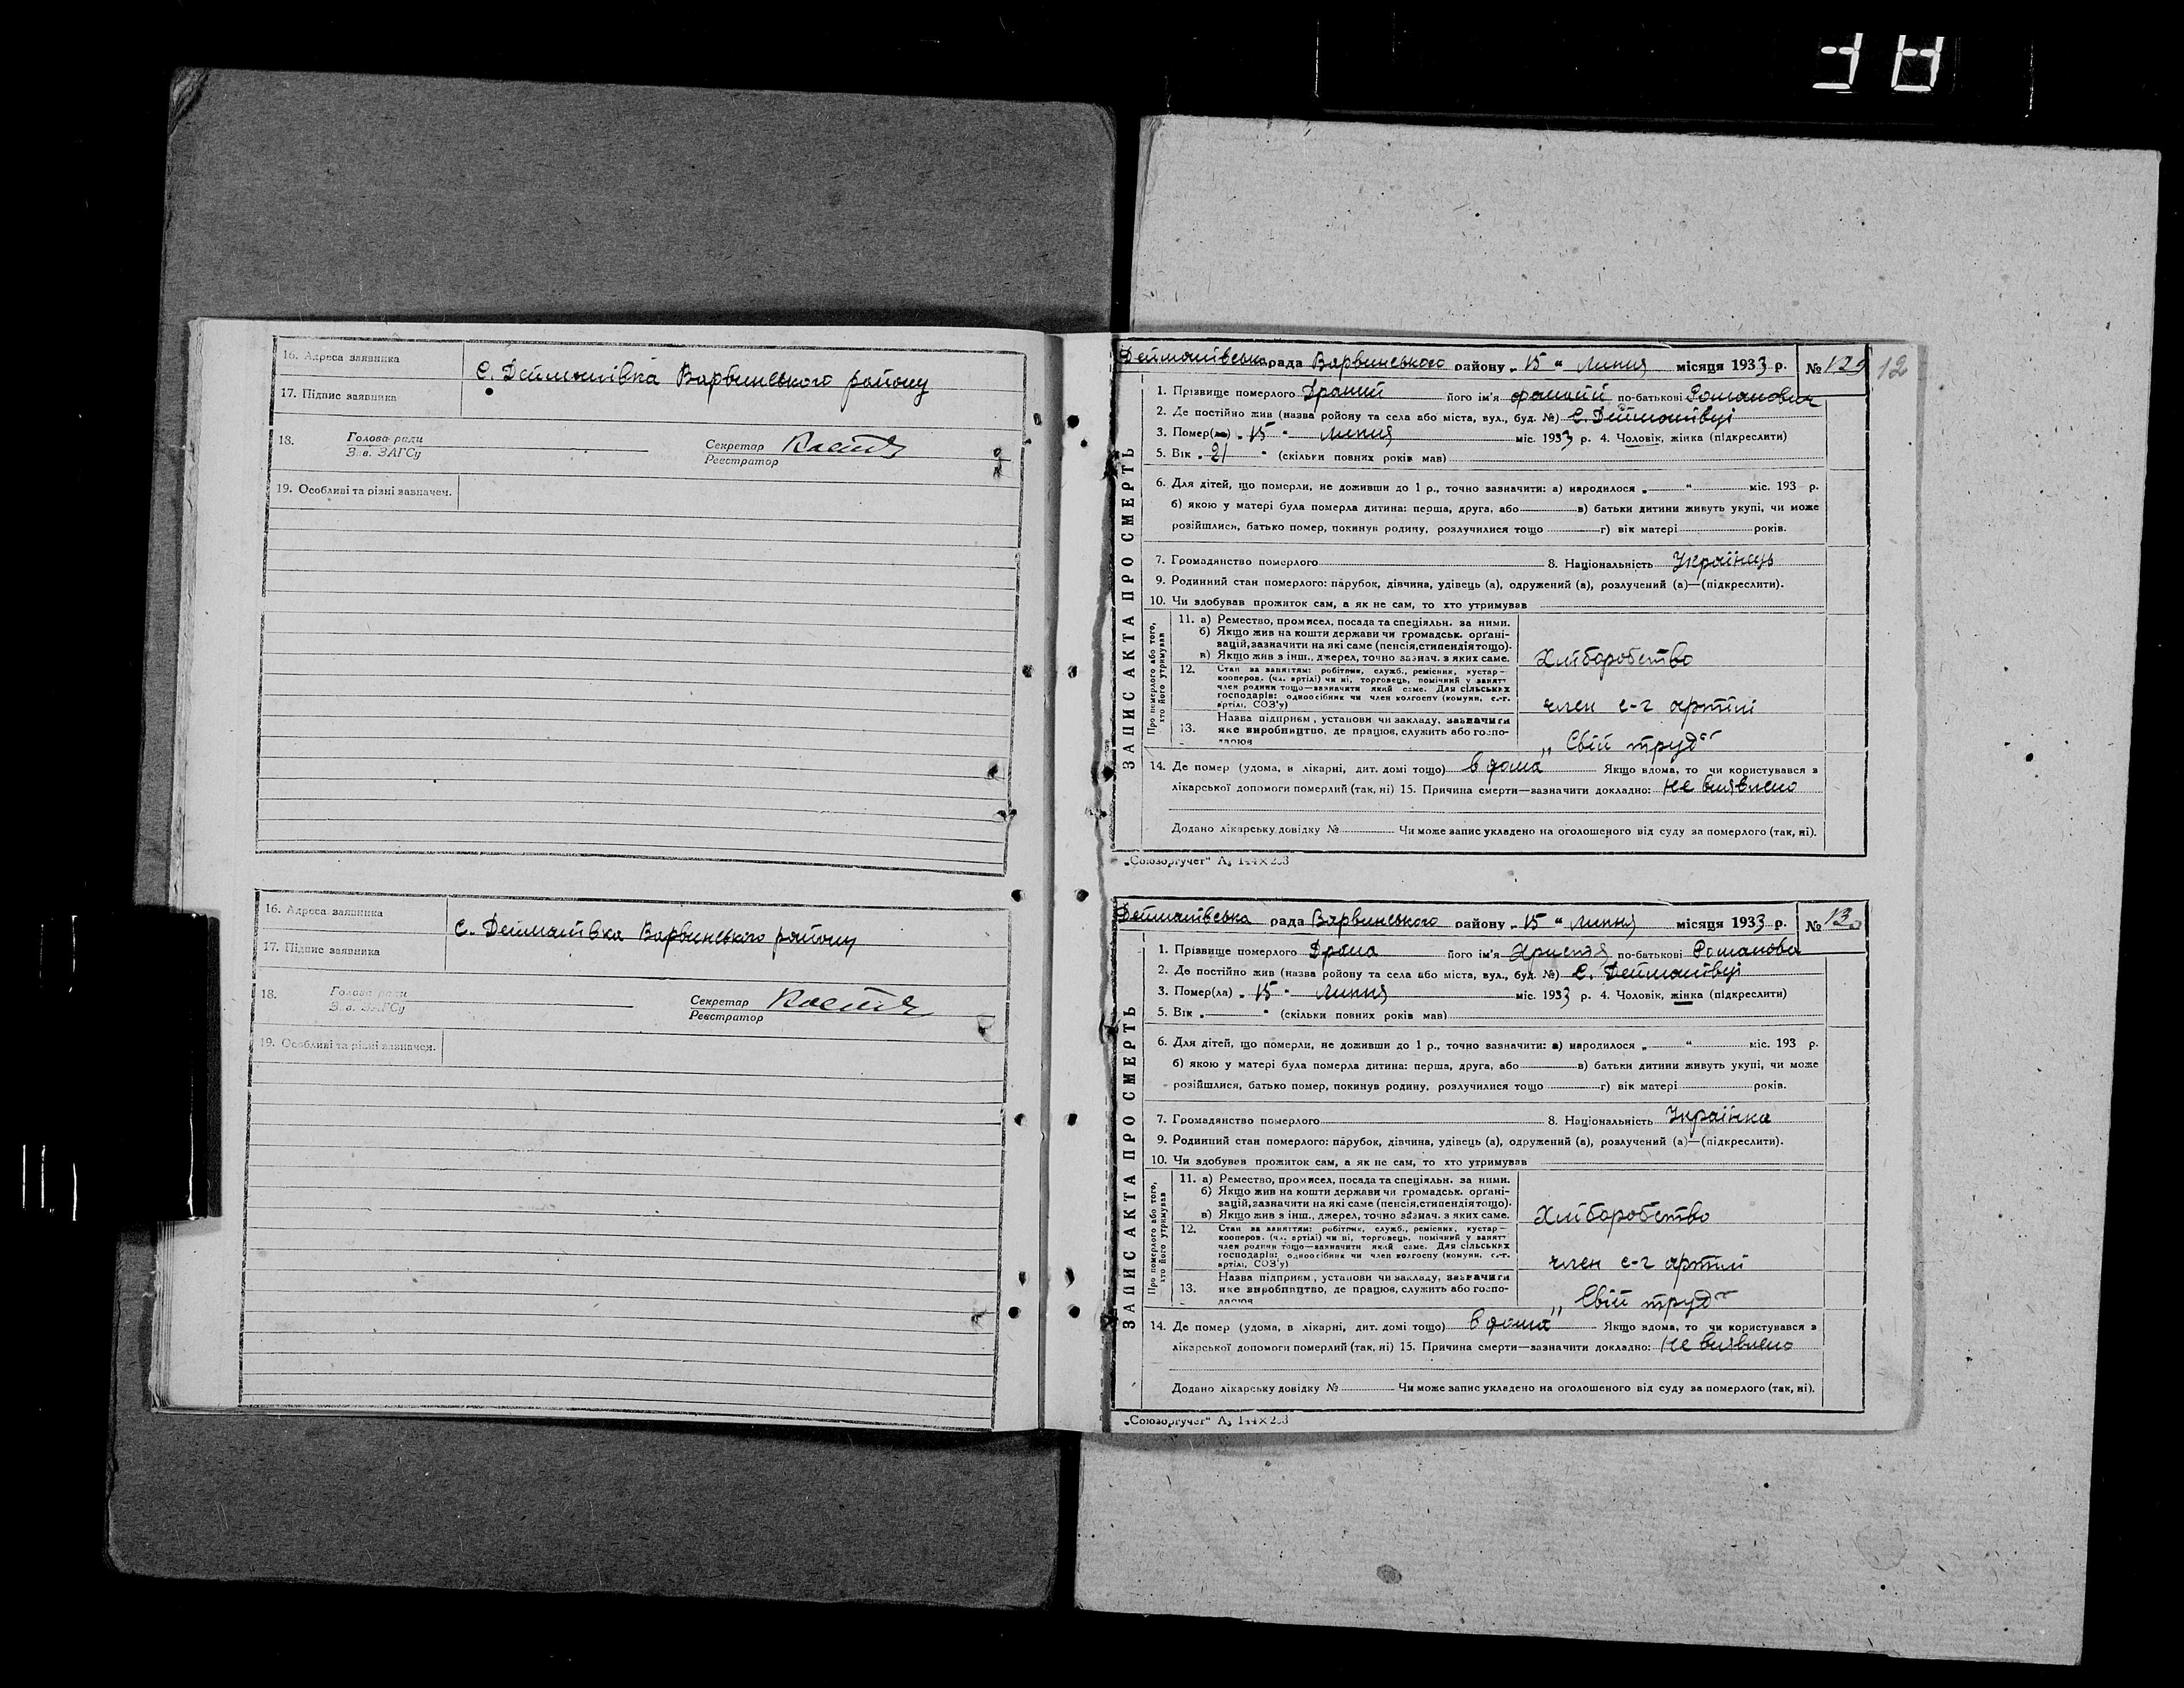 38
16. Адреса заявника
с. Дейманівка Варвинського району
17. Підпис заявника
18. Голова ради
Зав. ЗАГСу
Секретар
Реєстратор
19. Особливі та різні зазначен.
16. Адреса заявника
с. Дейманівка Варвинського району
17. Підпис заявника
18. Голова ради
Зав. ЗАГСу
Секретар
Реєстратор
19. Особливі та різні зазначен.
12
ЗАПИС АКТА ПРО СМЕРТЬ
Дейманівська рада Варвинського району „15“ Липня місяця 1933 р. № 129
1. Прізвище померлого його ім'я по-батькові Романович
2. Де постійно жив (назва району та села або міста, вул., буд. №) С. Дейманівці
3. Помер(ла) „15“ липня міс. 1933 р. 4. Чоловік, жінка (підкреслити)
5. Вік „21“ (скільки повних років мав)
6. Для дітей, що померли, не доживши до 1 р., точно зазначити: а) народилося „ “ міс. 193 р.
б) якою у матері була померла дитина: перша, друга, або в) батьки дитини живуть укупі, чи може
розійшлися, батько помер, покинув родину, розлучилися тощо г) вік матері років.
7. Громадянство померлого 8. Національність Українець
9. Родинний стан померлого: парубок, дівчина, удівець (а), одружений (а), розлучений (а)—(підкреслити).
10. Чи здобував прожиток сам, а як не сам, то хто утримував
Про померлого або того,
хто його утримував
11. а) Ремество, промисел, посада та спеціяльн. за ними.
б) Якщо жив на кошти держави чи громадськ. організацій, зазначити на які саме (пенсія, стипендія тощо).
в) Якщо жив з інш., джерел, точно зазнач. з яких саме.
Хліборобство
12. Стан за заняттям: робітник, служб., ремісник, кустар—
кооперов. (чл. артілі) чи ні, торговець, помічний у занятт
член родини тощо—зазначити який саме. Для сільських
господарів: одноосібник чи член колгоспу (комуни, с.-г.
артілі, СОЗ'у)
член с-г артілі
13. Назва підприєм., установи чи закладу, зазначити
яке виробництво, де працюв, служить або госпо-
„Свій труд“
14. Де помер (удома, в лікарні, дит. домі тощо) вдома Якщо вдома, то чи користувався з
лікарської допомоги померлий (так, ні) 15. Причина смерти—зазначити докладно: не виявлено
Додано лікарську довідку № Чи може запис укладено на оголошеного від суду за померлого (так, ні).
„Союзоргучет“
ЗАПИС АКТА ПРО СМЕРТЬ
Дейманівська рада Варвинського району „15“ Липня місяця 1933 р. № 130
1. Прізвище померлого його ім'я Христя по-батькові Романова
2. Де постійно жив (назва району та села або міста, вул., буд. №) С. Дейманівці
3. Помер(ла) „15“ Липня міс. 1933 р. 4. Чоловік, жінка (підкреслити)
5. Вік „ “ (скільки повних років мав)
6. Для дітей, що померли, не доживши до 1 р., точно зазначити: а) народилося „ “ міс. 193 р.
б) якою у матері була померла дитина: перша, друга, або в) батьки дитини живуть укупі, чи може
розійшлися, батько помер, покинув родину, розлучилися тощо г) вік матері років.
7. Громадянство померлого 8. Національність Українка
9. Родинний стан померлого: парубок, дівчина, удівець (а), одружений (а), розлучений (а)—(підкреслити).
10. Чи здобував прожиток сам, а як не сам, то хто утримував
Про померлого або того,
хто його утримував
11. а) Ремество, промисел, посада та спеціяльн. за ними.
б) Якщо жив на кошти держави чи громадськ. організацій, зазначити на які саме (пенсія, стипендія тощо).
в) Якщо жив з інш., джерел, точно зазнач. з яких саме.
Хліборобство
12. Стан за заняттям: робітник, служб., ремісник, кустар—
кооперов. (чл. артілі) чи ні, торговець, помічний у занятт
член родини тощо—зазначити який саме. Для сільських
господарів: одноосібник чи член колгоспу (комуни, с.-г.
артілі, СОЗ'у)
член с-г артілі
13. Назва підприєм., установи чи закладу, зазначити
яке виробництво, де працюв, служить або госпо-
„Свій труд“
14. Де помер (удома, в лікарні, дит. домі тощо) вдома Якщо вдома, то чи користувався з
лікарської допомоги померлий (так, ні) 15. Причина смерти—зазначити докладно: не виявлено
Додано лікарську довідку № Чи може запис укладено на оголошеного від суду за померлого (так, ні).
„Союзоргучет“